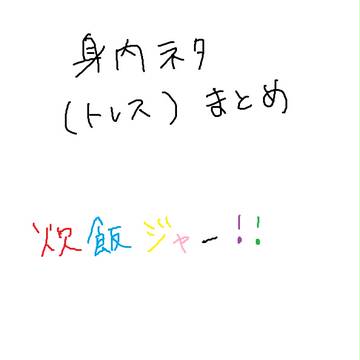 身内ネタ
(トレス)まとめ
炊飯ジャー!!